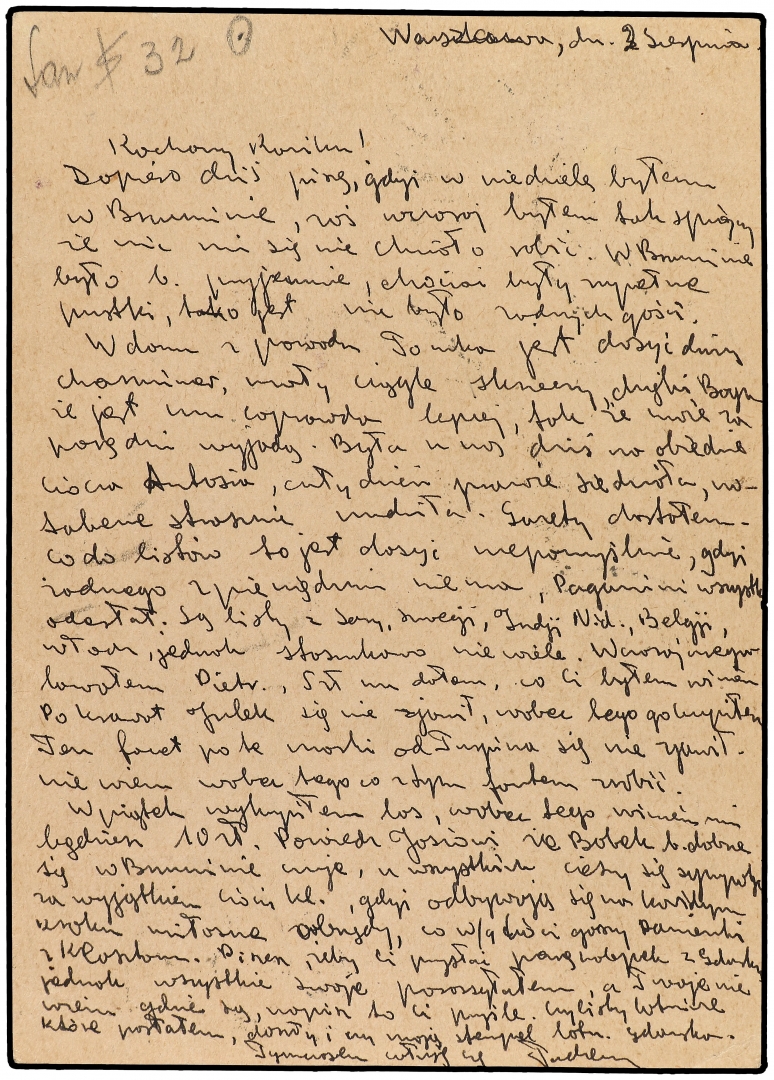 San $ 32
Warszawa, dn. 2 Sierpnia.
Kochany Kaziku!
Dopiero dziś piszę, gdyż w niedzielę byłem
w Brwinowie, zaś wczoraj byłem tak śpiący
że nic mi się nie chciało robić. W Brwinowie
było b. przyjemnie, chociaż były zupełne
pustki, tako jest nie było żadnych gości.
W domu z powodu Tomka jest dosyć duży
mały ciągle skrzeczy, dzięki Bogu
że jest mu coprawda lepiej, tak że może za
parę dni wyjadą. Była u nas dziś na obiedzie
ciocia Antosia, cały dzień prawie siedziała, no-
tabene strasznie nudziła. Gazety dostałem.
Co do listów to jest dosyć niepomyślnie, gdyż
żadnego z pieniędzmi nie ma, Paganini wszystko
odesłał. Są listy z Szwecji, Indji Nid., Belgji,
Włoch, jednak stosunkowo niewiele. Wczoraj
Pietr., 5 zł mu dałem, co Ci byłem winien
Po krawat Julek się nie zjawił, wobec tego go kupiłem
Ten facet po te marki od Turpina się nie zjawił.
nie wiem wobec tego co z tym fantem zrobić.
W piątek wykupiłem los, wobec tego winien mi
będziesz 10 zł. Powiedz Josiowi że Bobek b. dobrze
się w Brwinowie czuje, u wszystkich cieszy się sympatją
za wyjątkiem cioci Kl., gdyż odbywają się na każdym
kroku miłosne obrzędy, co w/g cioci gorszy panienki
z Klasztoru. Piszesz, żeby Ci przysłać parę nalepek z Gdańska
jednak wszystkie swoje porozsyłałem, a Twoje nie
wiem gdzie są, napisz to Ci przyślę. Czy listy lotnicze
które posłałem, doszły i czy mają stempel lotn. Gdańska.
Tymczasem całuję Cię